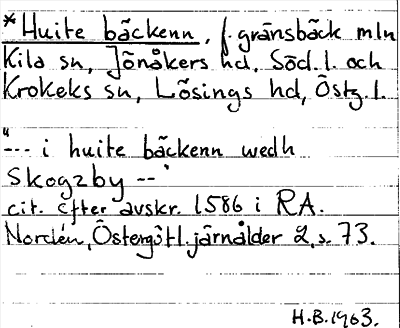 *Huite bäckenn, f. gränsbäck mln
Kila sn, Jönåkers hd, Söd. l. och
Krokeks sn, Lösings hd, Östg. l.
"--- i huite bäckenn wedh
Skogzby --"
cit. efter avskr. 1586 i RA.
Nordén, Östergötl. järnålder 2, s. 73.
H.B. 1963.